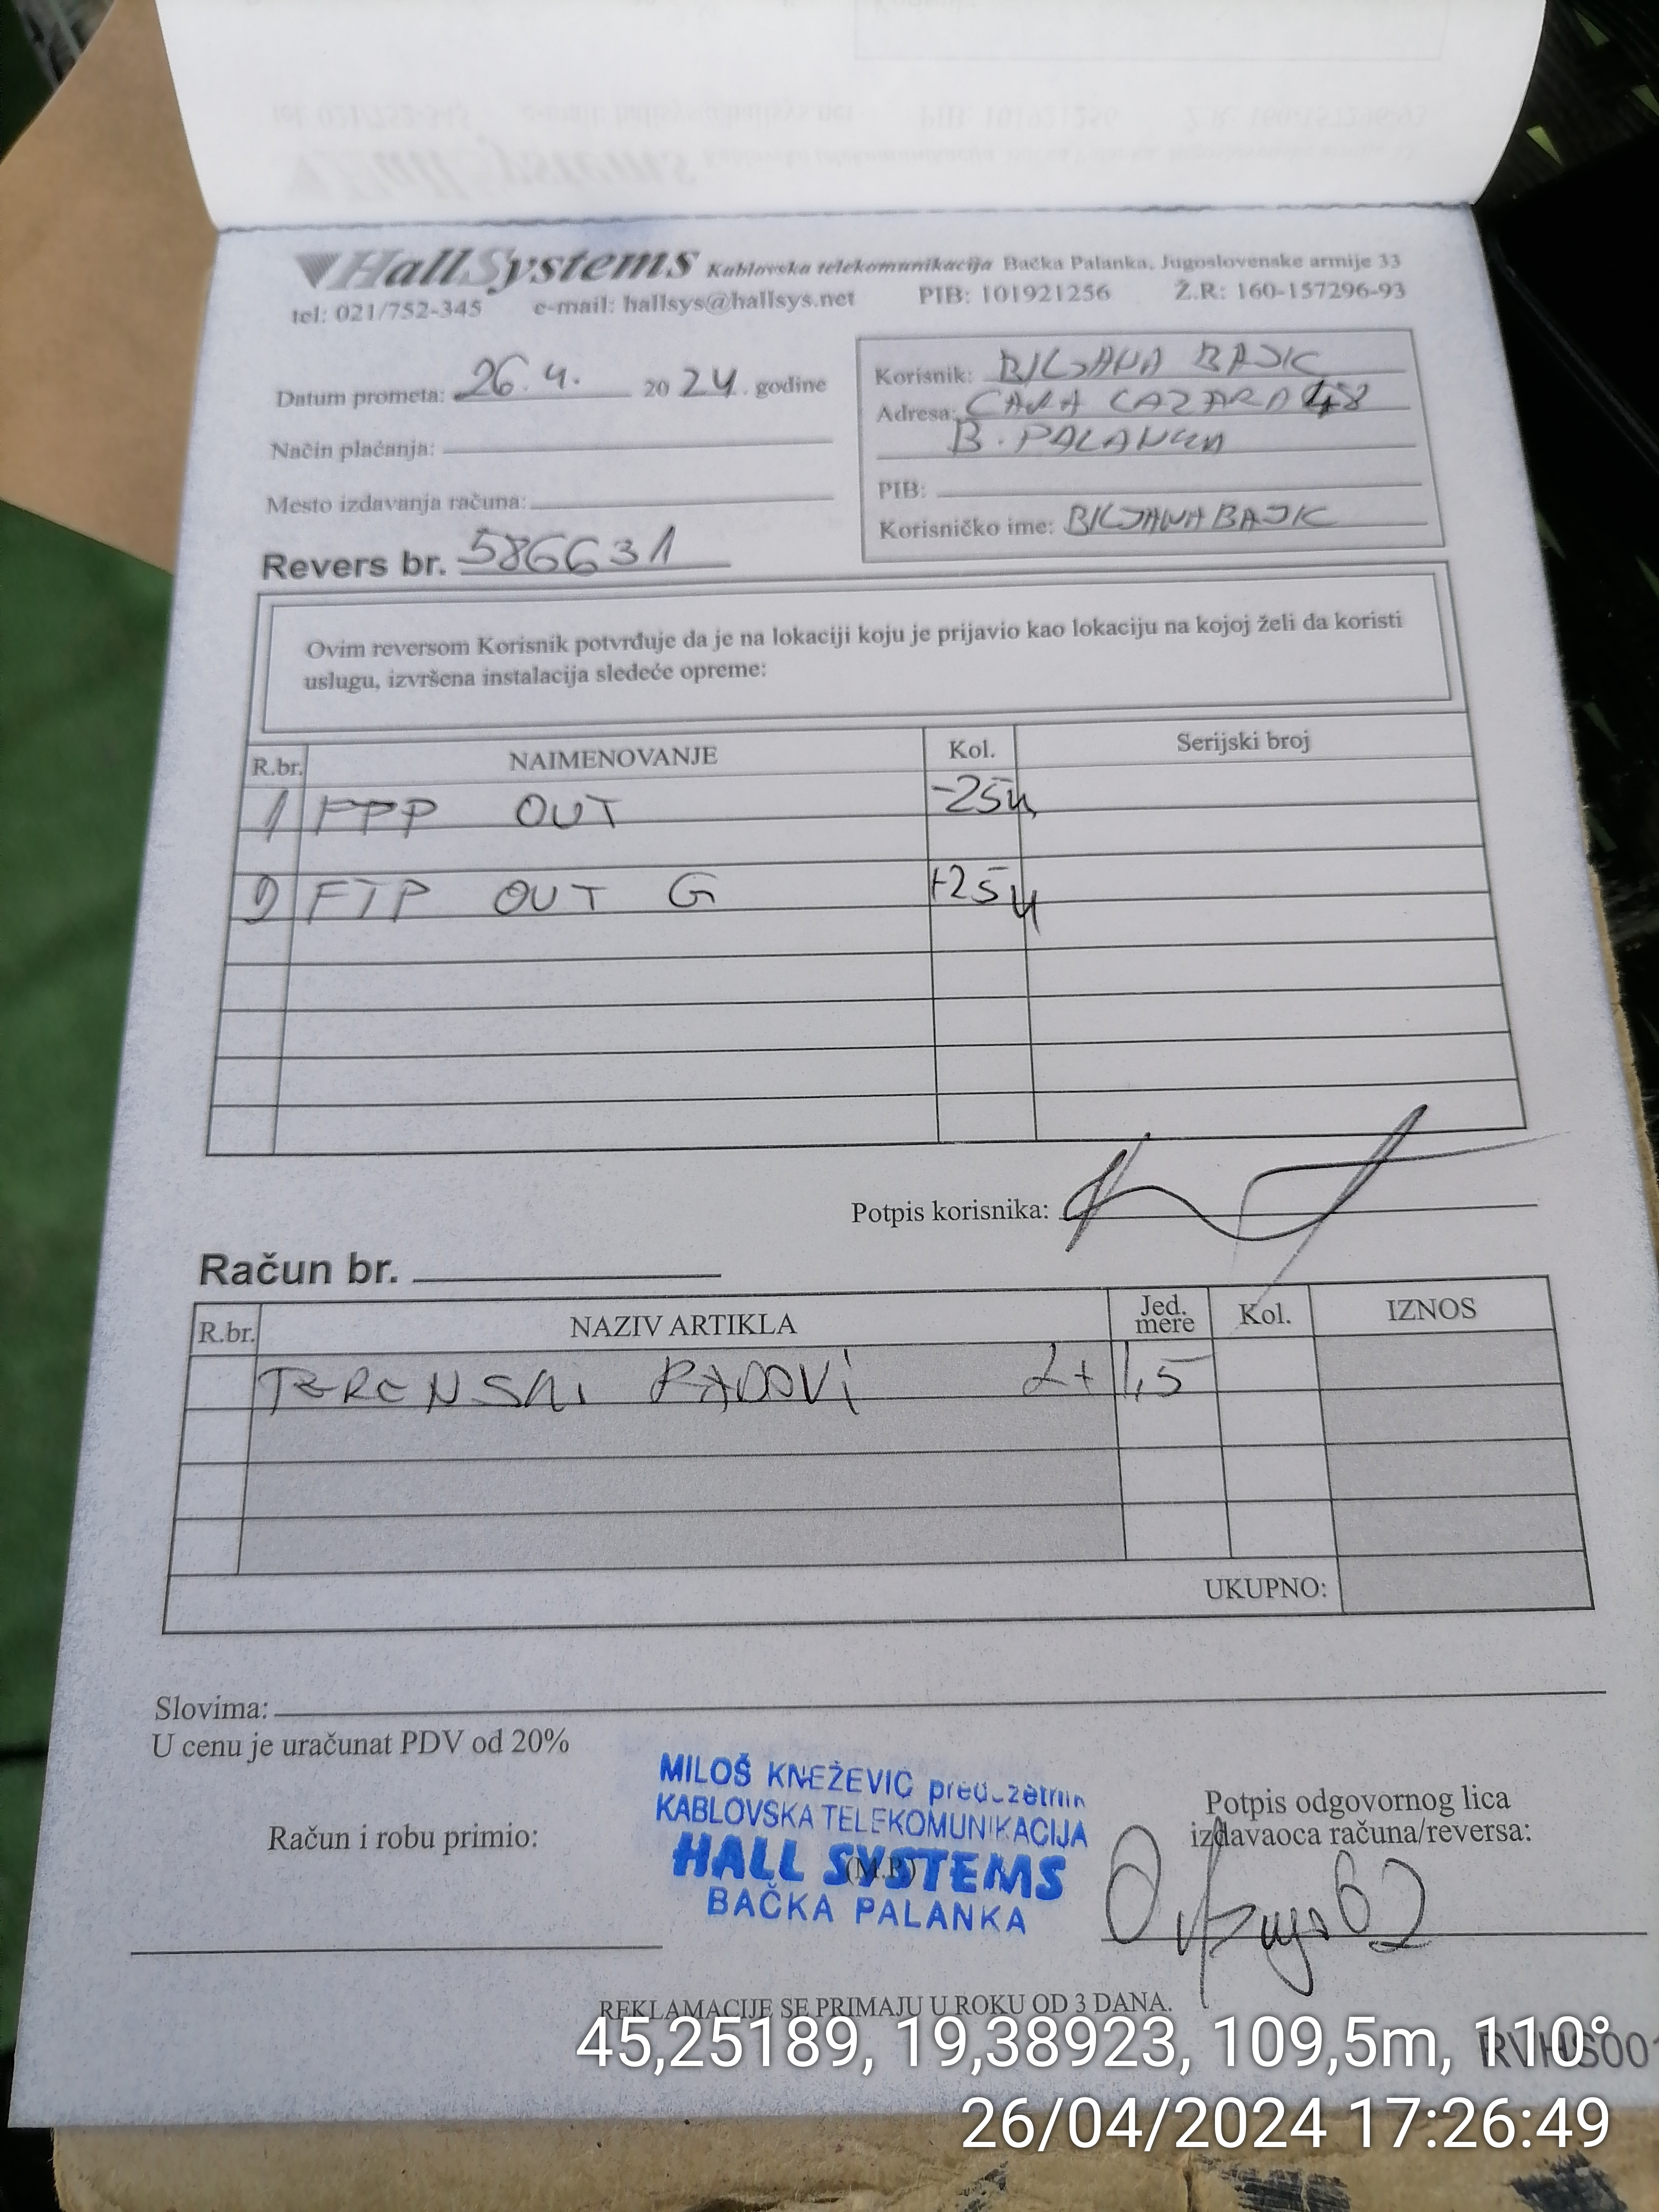 HallSystems Kablovska telekomunikacija Bačka Palanka, Jugoslovenske armije 33
tel: 021/752-345 e-mail: hallsys@hallsys.net PIB: 101921256 Ž.R: 160-157296-93
Datum prometa: 26.4. 2024. godine
Način plaćanja:
Mesto izdavanja računa:
Revers br. 586631
Korisnik: BILJANA BAJIC
Adresa: CARA LAZARA 48
B. PALANKA
PIB:
Korisničko ime: BILJANABAJIC
Ovim reversom Korisnik potvrđuje da je na lokaciji koju je prijavio kao lokaciju na kojoj želi da koristi
uslugu, izvršena instalacija sledeće opreme:
R.br. NAIMENOVANJE Kol. Serijski broj
1 FTP OUT -25m
2 FTP OUT G +25m
Potpis korisnika:
Račun br.
R.br. NAZIV ARTIKLA Jed. mere Kol. IZNOS
TERENSKI RADOVI 2+1,5
UKUPNO:
Slovima:
U cenu je uračunat PDV od 20%
MILOŠ KNEŽEVIĆ preduzetnik
KABLOVSKA TELEKOMUNIKACIJA
HALL SYSTEMS
(M.P.)
BAČKA PALANKA
Račun i robu primio:
Potpis odgovornog lica
izdavaoca računa/reversa:
REKLAMACIJE SE PRIMAJU U ROKU OD 3 DANA.
45,25189, 19,38923, 109,5m, 110°
RVHS001
26/04/2024 17:26:49